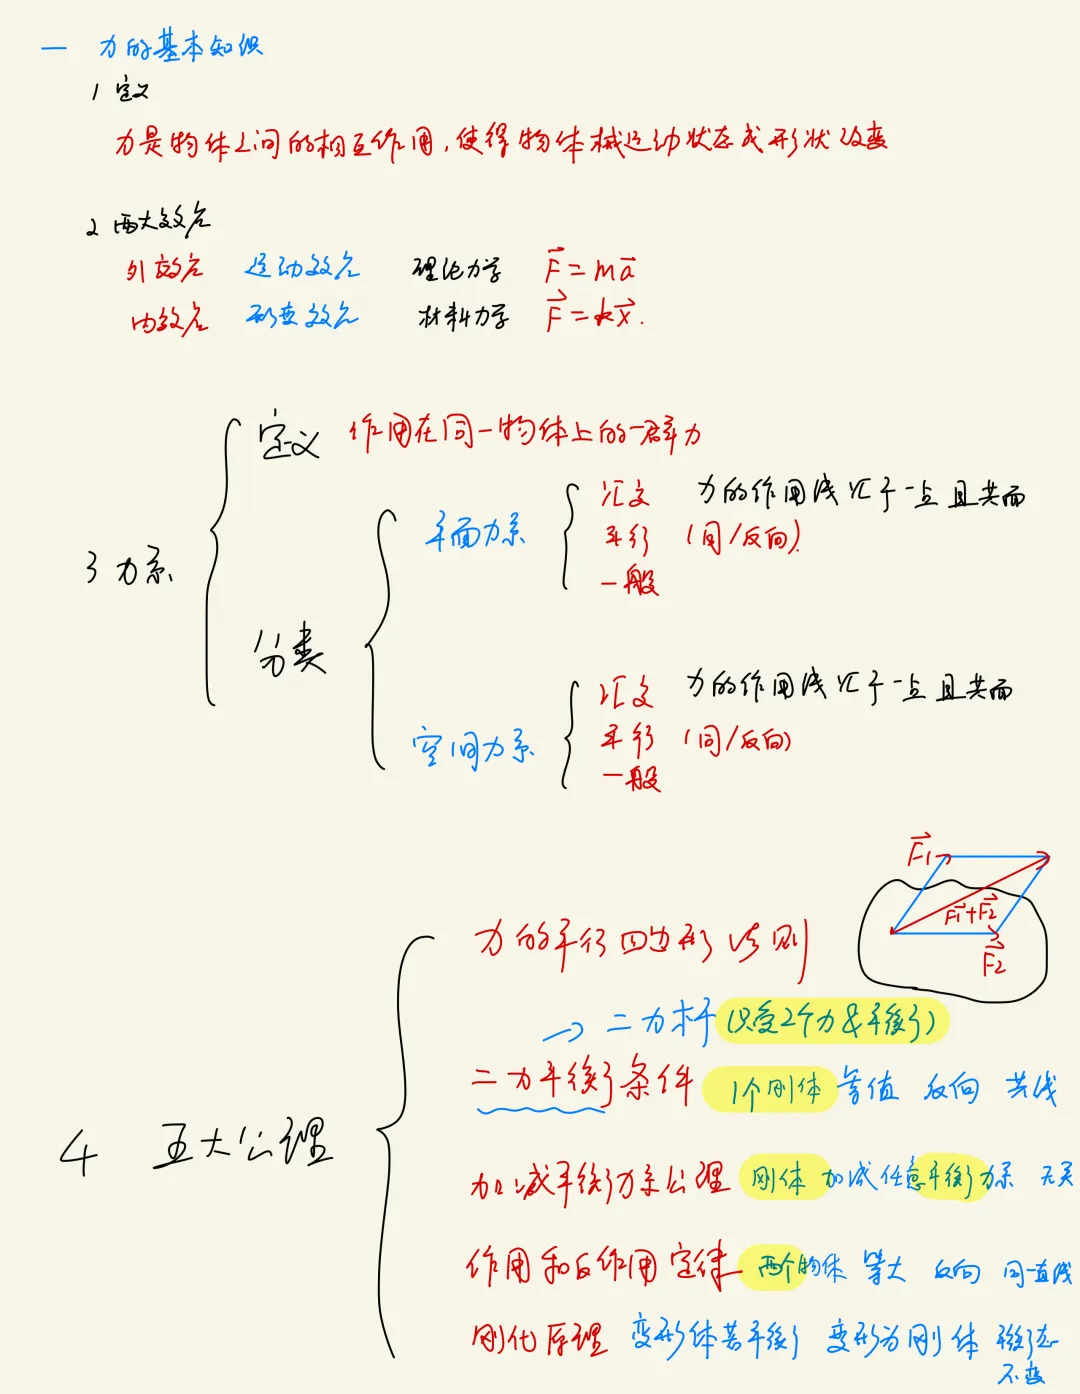 一 力的基本知识
1 定义
力是物体之间的相互作用,使得物体械运动状态或形状改变
2 两大效应
外效应 运动效应 理论力学 F=ma
内效应 形变效应 材料力学 F=kx.
3 力系
定义 作用在同一物体上的一群力
分类
平面力系
汇交 力的作用线汇于一点且共面
平行 (同/反向)
一般
空间力系
汇交 力的作用线汇于一点且共面
平行 (同/反向)
一般
4 五大公理
力的平行四边形法则
F1
F1+F2
F2
→ 二力杆(只受2个力&平衡)
二力平衡条件 1个刚体 等值 反向 共线
加减平衡力系公理 刚体 加减任意平衡力系 无关
作用和反作用定律 两个物体 等大 反向 同一直线
刚化原理 变形体若平衡 变形为刚体 平衡态
不变